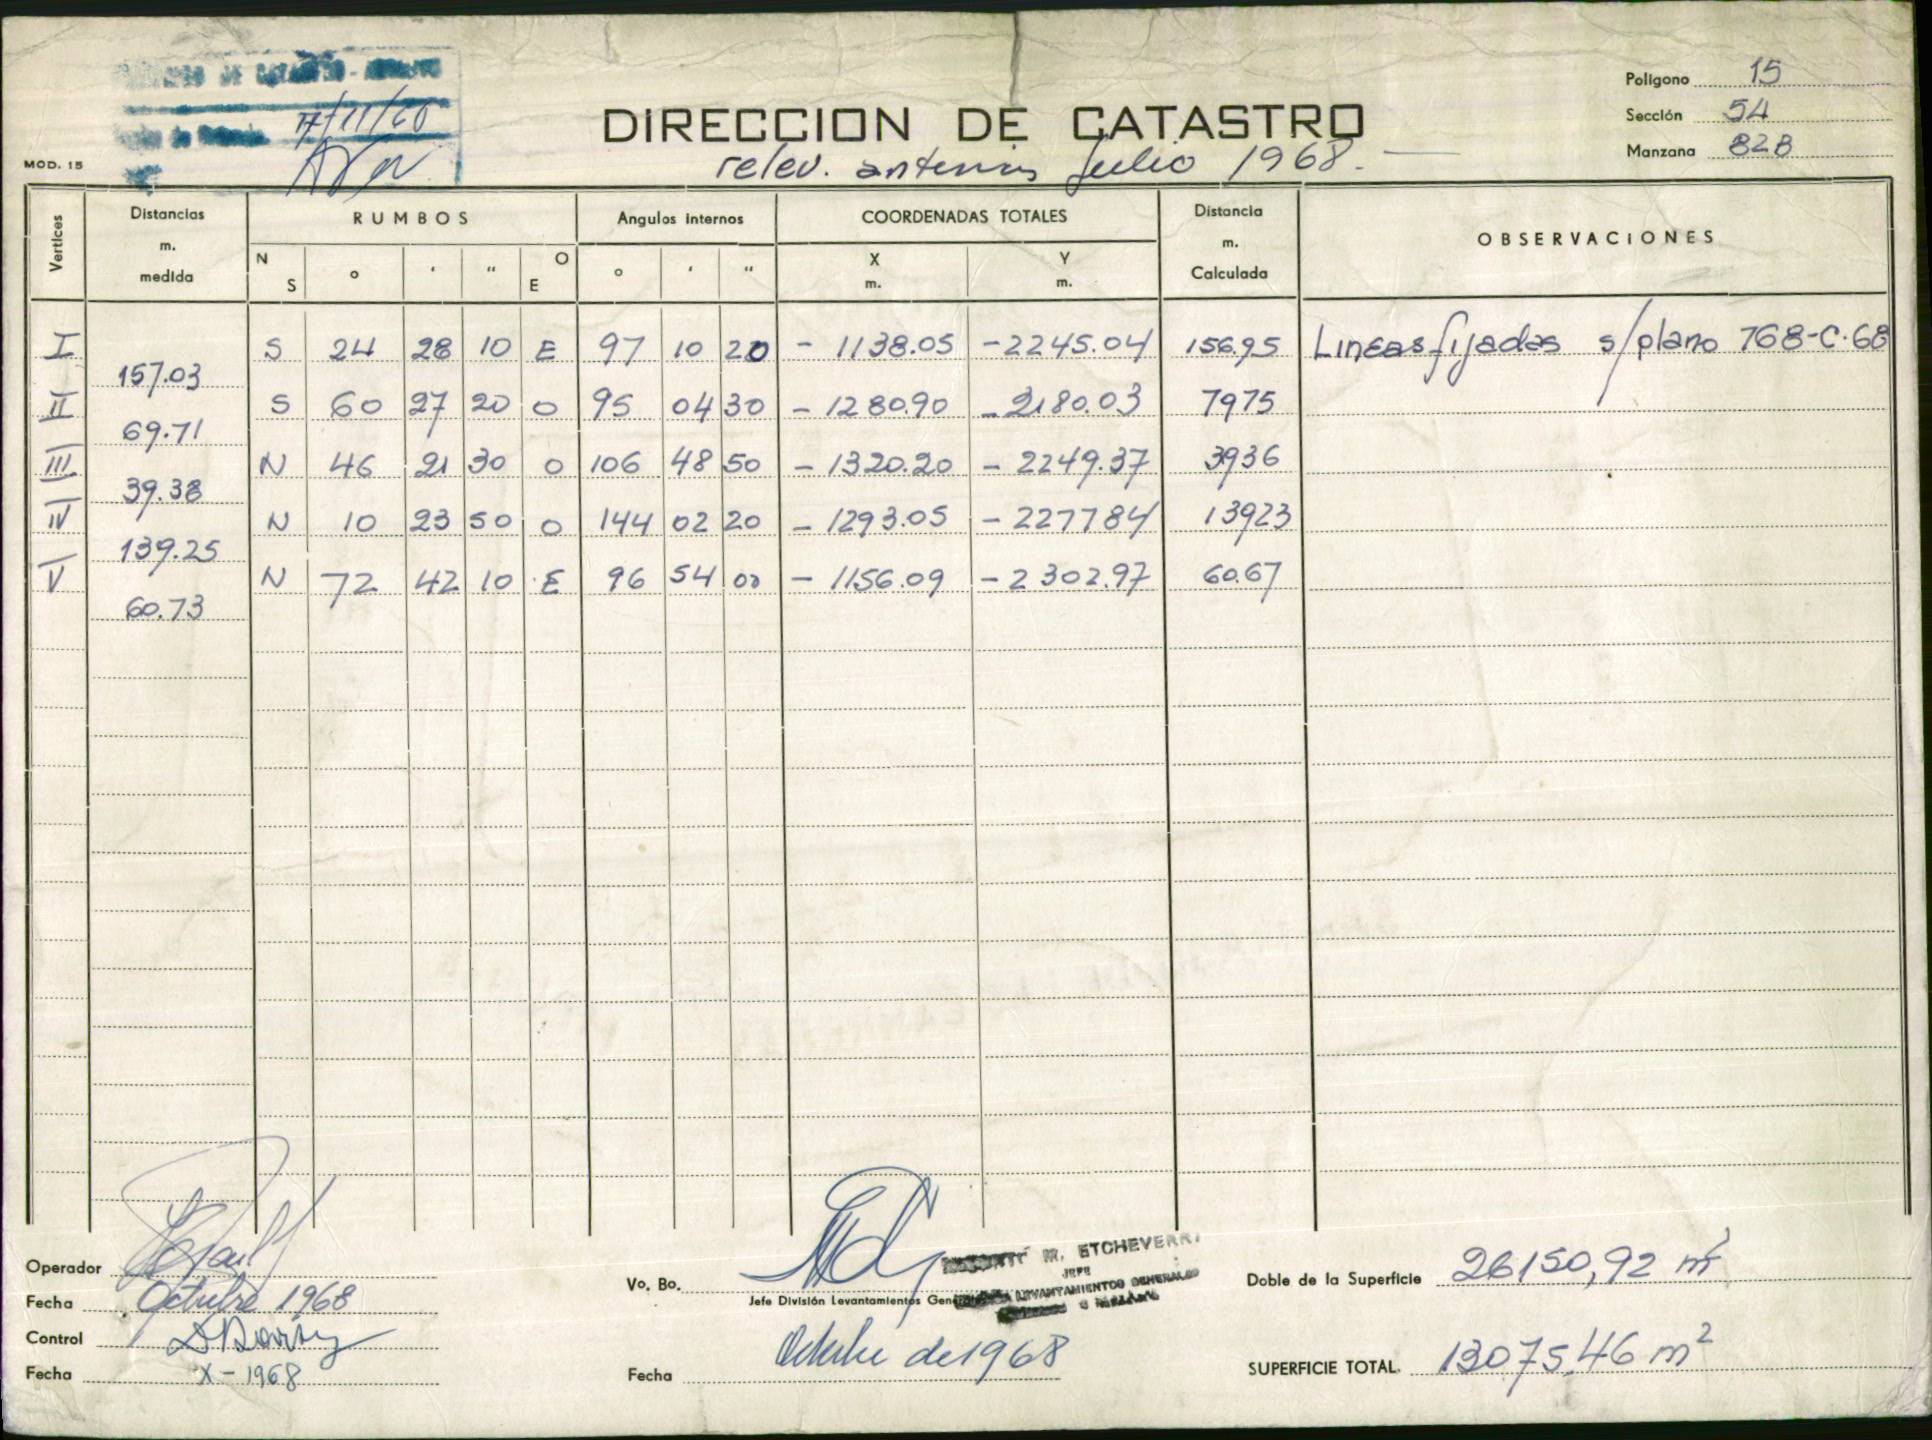 DE CATASTRO -
17/11/68
Poligono 15
DIRECCION DE CATASTRO
Sección 54
MOD. 15
relev. anterior Julio 1968. —
Manzana 828
Vertices
Distancias m. medida
RUMBOS
Angulos internos
COORDENADAS TOTALES
Distancia m. Calculada
OBSERVACIONES
N S ° ' " O E ° ' " X m. Y m.
I S 24 28 10 E 97 10 20 - 1138.05 -2245.04 156.95 Lineas fijadas s/plano 768-C-68
157.03
II S 60 27 20 O 95 04 30 - 1280.90 - 2180.03 7975
69.71
III N 46 21 30 O 106 48 50 - 1320.20 - 2249.37 3936
39.38
IV N 10 23 50 O 144 02 20 - 1293.05 - 227784 13923
139.25
V N 72 42 10 E 96 54 00 - 1156.09 - 2302.97 60.67
60.73
Operador
Fecha Octubre 1968
Control
Fecha X-1968
Vo. Bo.
M. ETCHEVERRY
JEFE
LEVANTAMIENTOS GENERALES
Jefe División Levantamientos
Fecha Octubre de 1968
Doble de la Superficie 26150,92 m²
SUPERFICIE TOTAL. 13075,46 m²